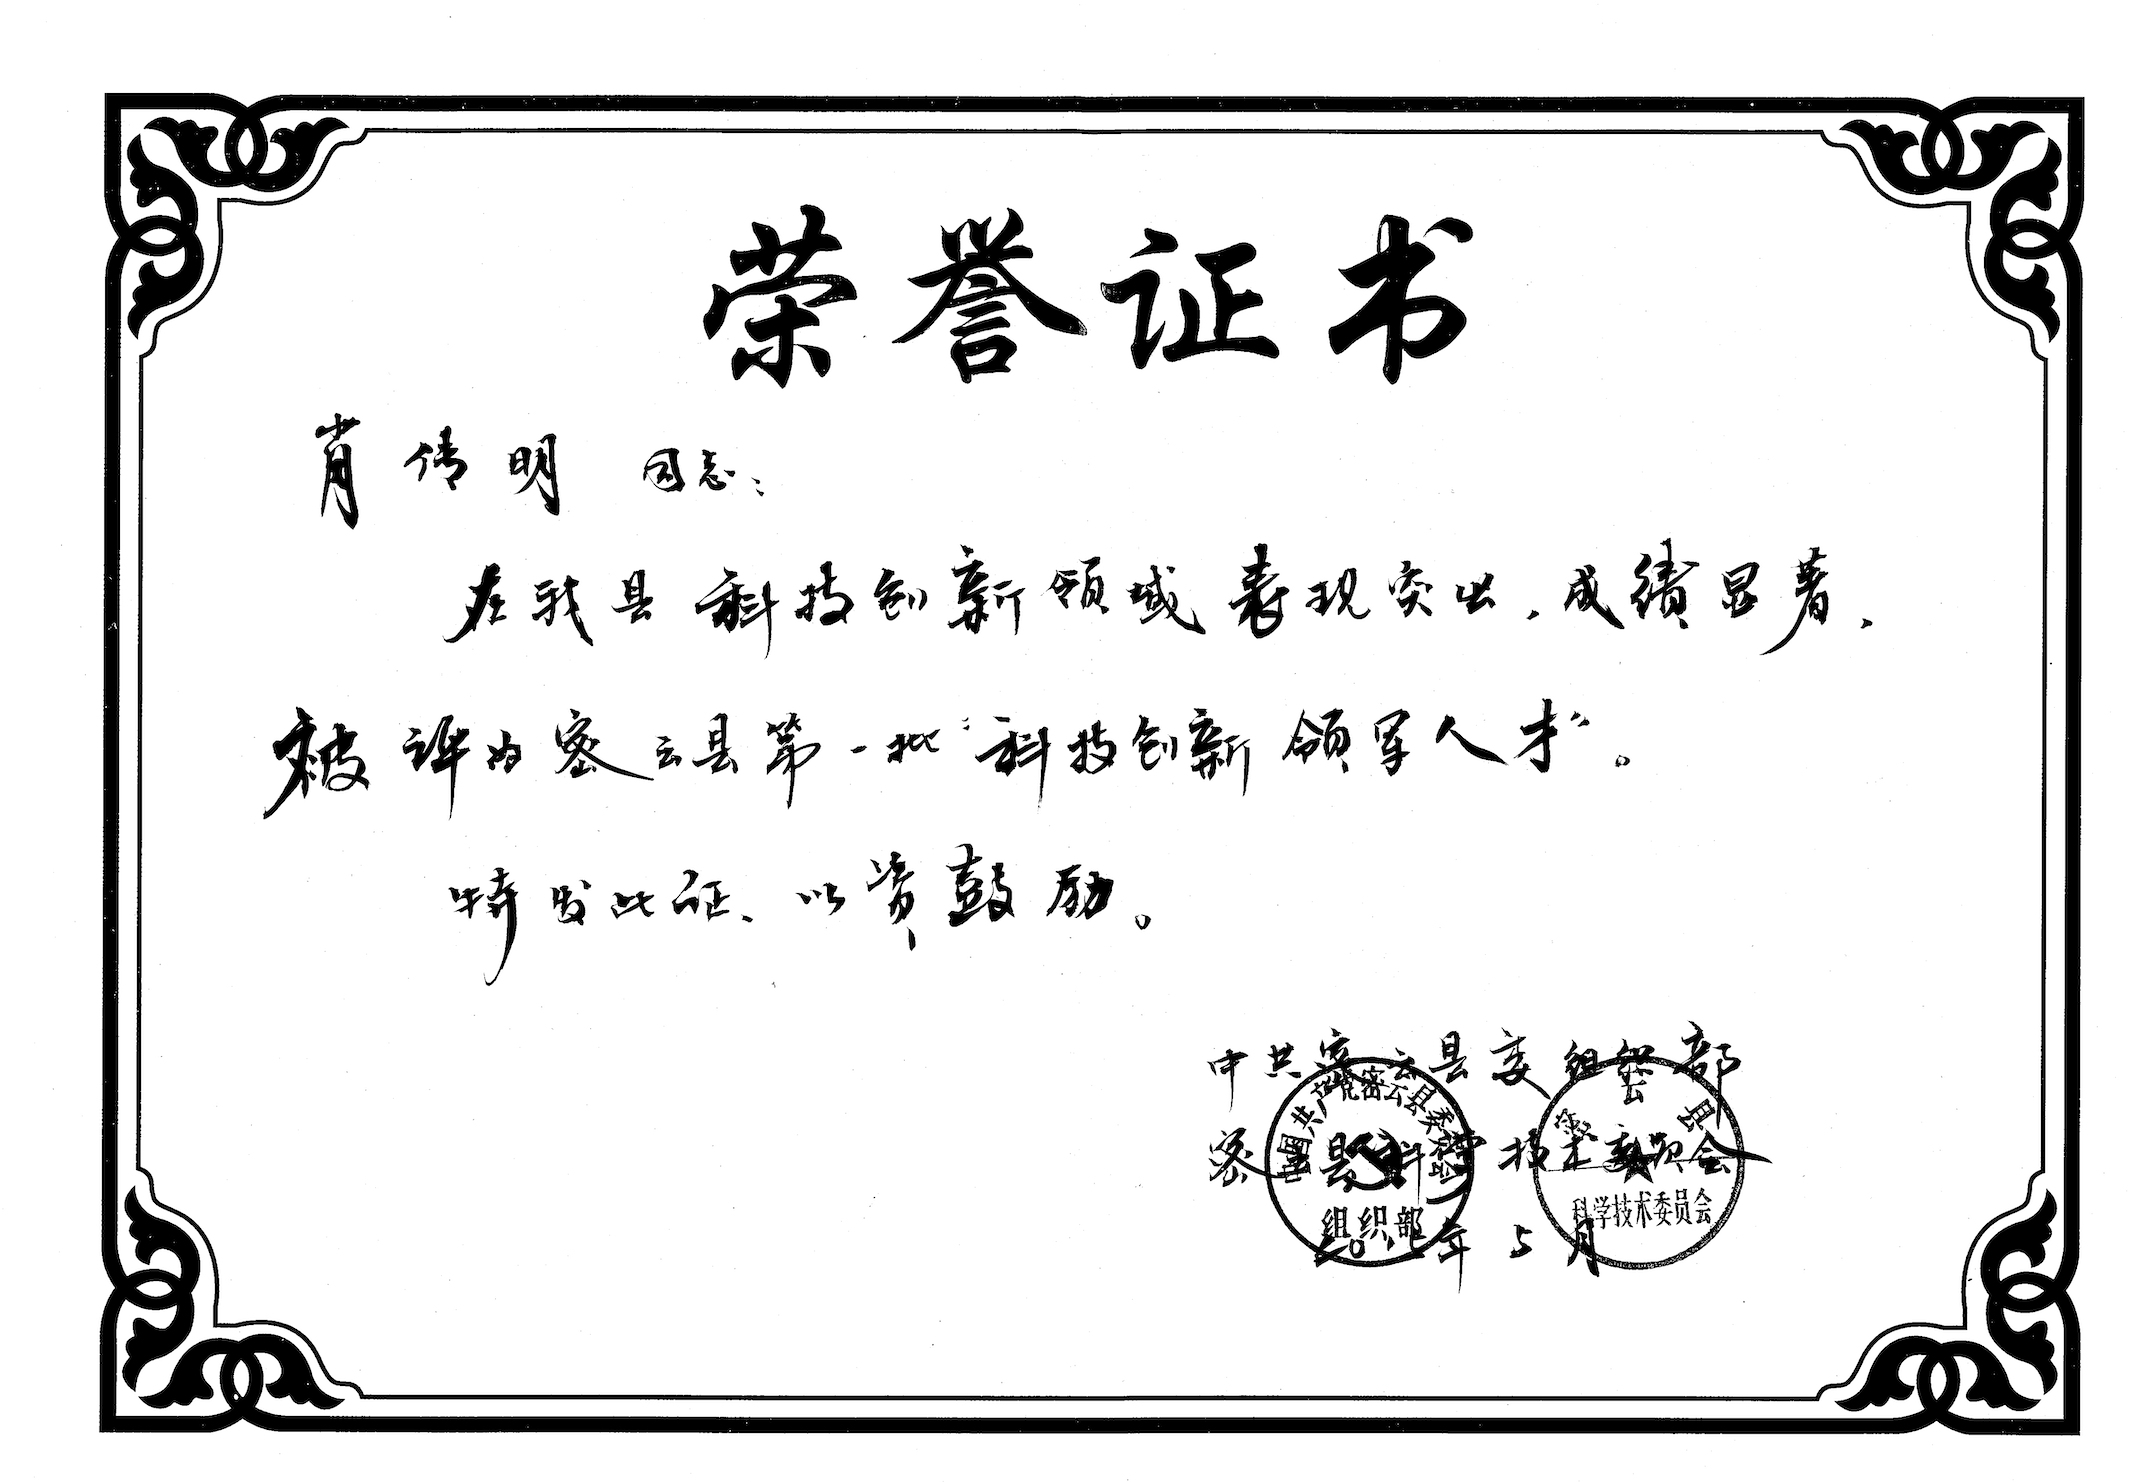 荣誉证书
肖传明 同志：
在我县科技创新领域表现突出，成绩显著，
被评为密云县第一批“科技创新领军人才”。
特发此证、以资鼓励。
中共密云县委组织部
密云县科学技术委员会
年5月
中国共产党密云县委员会
组织部
密云县
科学技术委员会